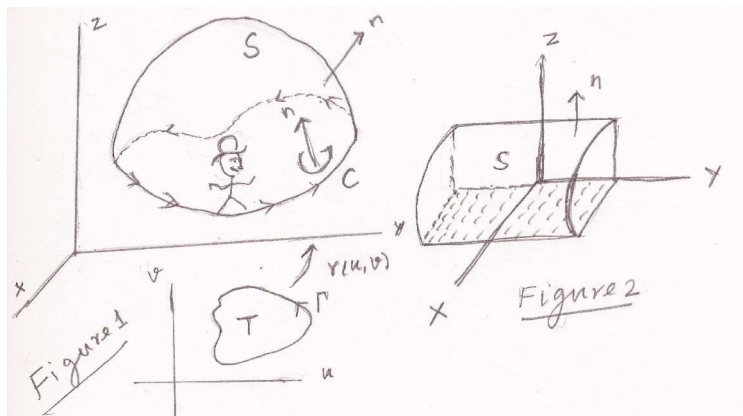 z
S
n
n
C
y
x
v
r(u,v)
Γ
T
u
Figure 1
z
n
S
y
x
Figure 2